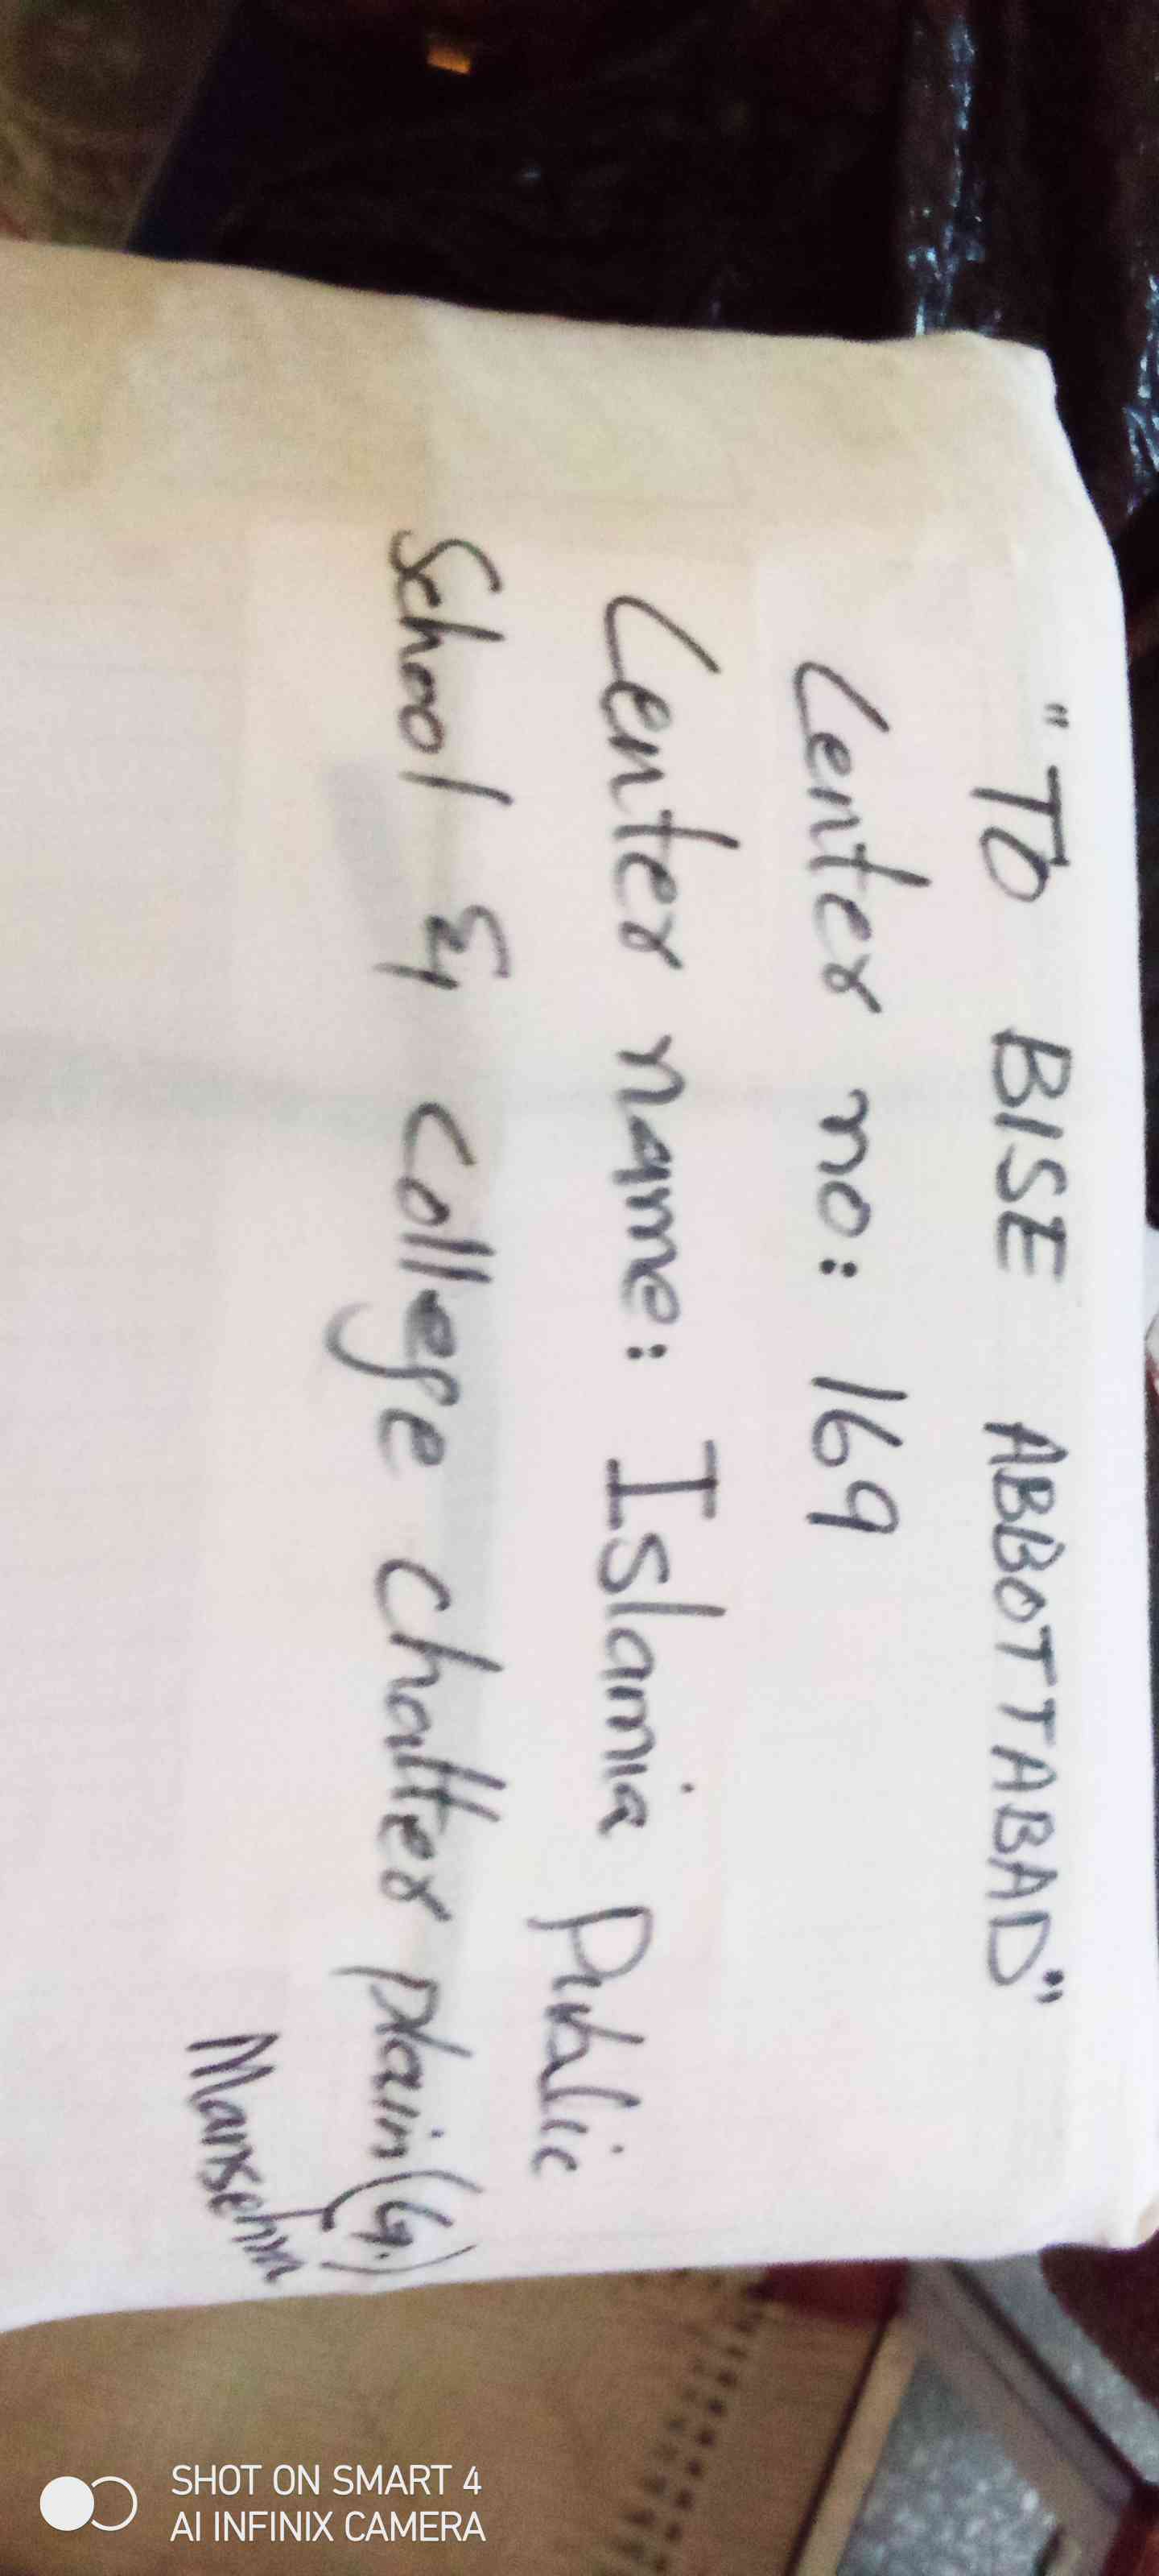 "TO BISE ABBOTTABAD"
Center no: 169
Center name: Islamia Public
School & college chatter plain (G.)
Mansehra
SHOT ON SMART 4
AI INFINIX CAMERA